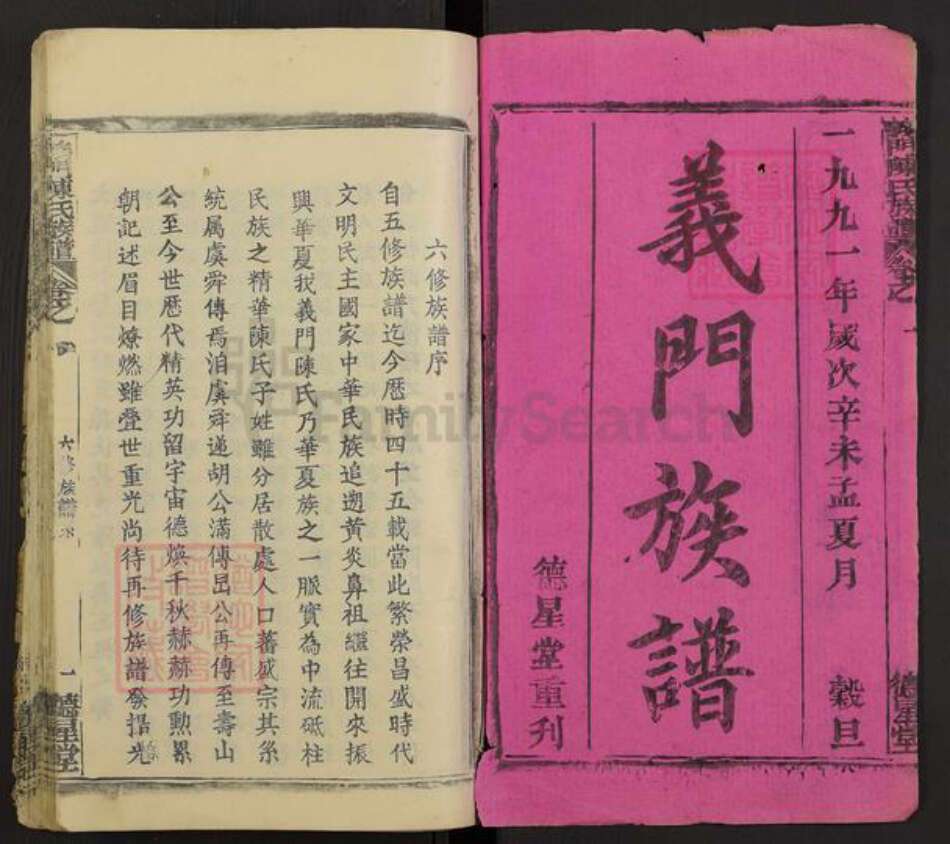 一九九一年歲次辛未孟夏月 穀旦
義門族譜
德星堂重刊
義門陳氏族譜 卷之一
德星堂
六修族譜序
自五修族譜迄今歷時四十五載當此繁榮昌盛時代
文明民主國家中華民族追遡黃炎鼻祖繼往開來振
興華夏我義門陳氏乃華夏族之一脈實為中流砥柱
民族之精華陳氏子姓雖分居散處人口蕃盛宗其系
統属虞舜傳焉洎虞舜递胡公滿傳旵公再傳至壽山
公至今世歷代精英功留宇宙德煥千秋赫赫功勲累
朝記述眉目燎燃雖叠世重光尚待再修族譜發揚光
義門陳氏族譜
卷之
六修族譜序
一
德星堂
FamilySearch